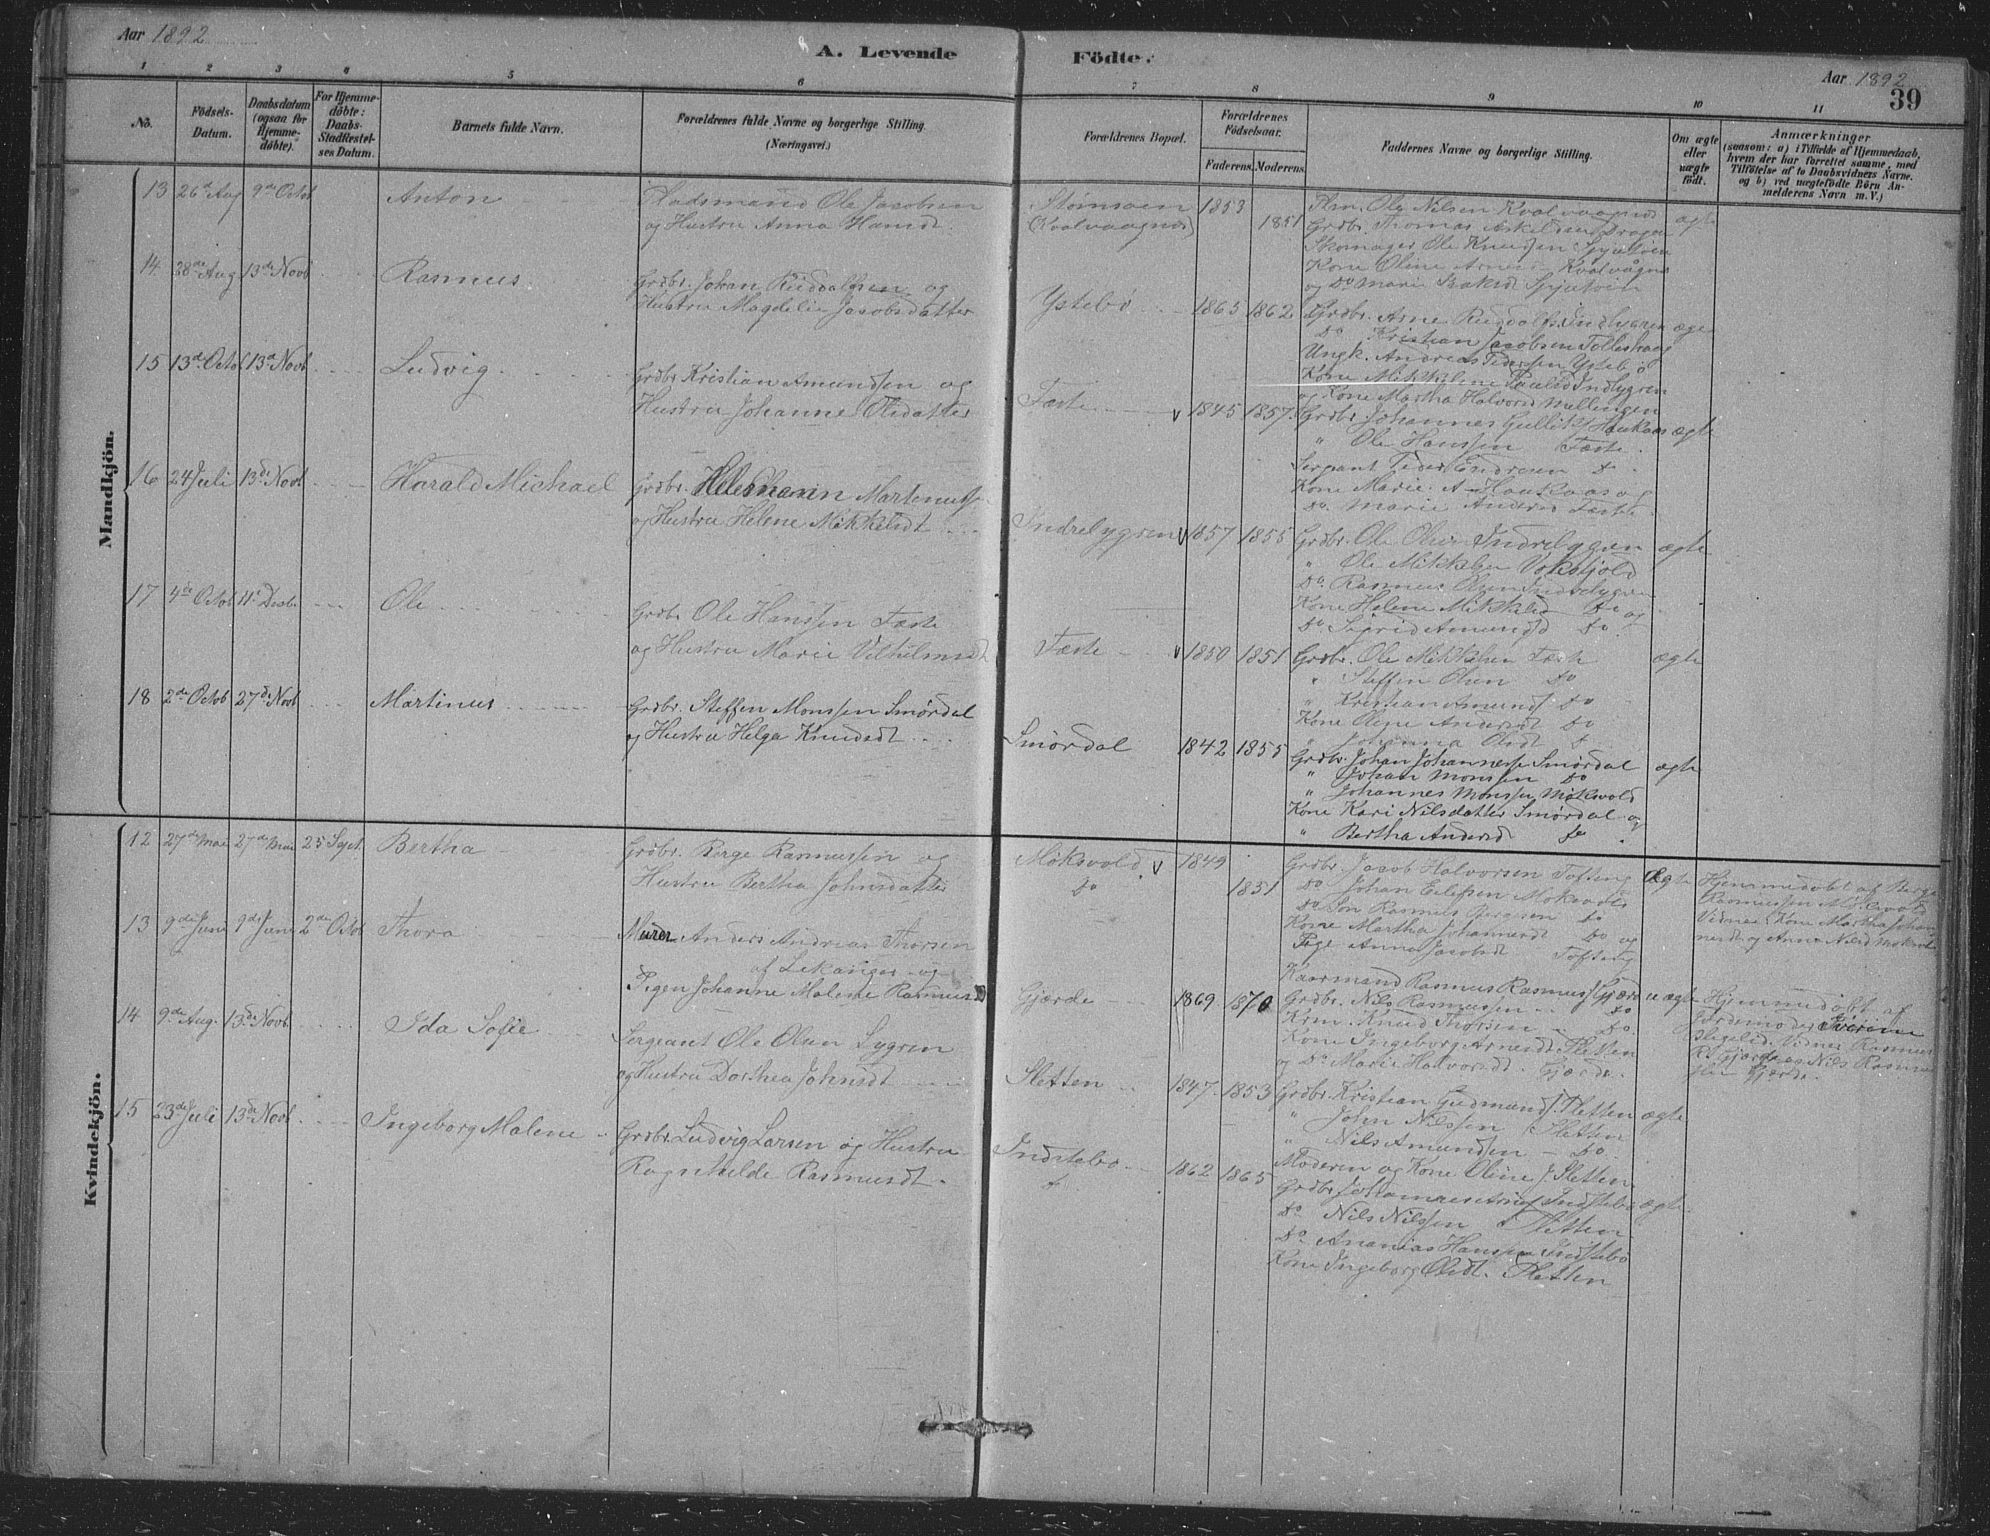 Aar 1892
A. Levende
Födte.
Aar 1892
39
1 2 3 4 5 6 7 8 9 10 11
No.
Födsels-
Datum.
Daabsdatum
(ogsaa for
Hjemme-
döbte).
For Hjemme-
döbte:
Daabs-
Stadfæstel-
ses Datum.
Barnets fulde Navn.
Forældrenes fulde Navne og borgerlige Stilling.
(Næringsvei.)
Forældrenes Bopæl.
Forældrenes
Födselsaar.
Faderens. Moderens.
Faddernes Navne og borgerlige Stilling.
Om ægte
eller
uægte
födt.
Anmærkninger
(saasom: a) i Tilfælde af Hjemmedaab,
hvem der har forrettet samme, med
Tilföielse af to Daabsvidners Navne,
og b) ved uægtefödte Börn An-
melderens Navn m. V.)
Mandkjön.
13 26de Aug 9de Octob Anton
Pladsmand Ole Jacobsen
og Hustru Anna Hansdt.
(Kvalvaagnes)
1853
1851
Ole Nilsen Kvalvaagnes
Grdbr. Thomas
Skomager Ole Knudsen
Kone Oline Kvalvågnes
og Do Marie
ægte
14 28de Aug 13de Novb Rasmus
Grdbr. Johan og
Hustru Magdeli Jacobsdatter
Ystebø 1865 1862
Grdbr. Arne Indlygren ægte
Do Kristian Jacobsen
Ungk. Andreas Pedersen Ystebø
Kone Mikkeline Indlygren
og Kone Martha Halvorsd Mellingen
15 13de Octob 13de Novb Ludvig
Grdbr. Kristian Amundsen og
Hustru Johanne Olsdatter
Fæste v 1845 1857
Grdbr. Johannes Gulliks. Haukaas ægte
" Ole Hanssen Fæste
Sergeant Peder Endresen Do
Kone Marie A Haukaas og
Do Marie Andersd Fæste
16 24 Juli 13de Novb Harald Michael
Grdbr. Martinuss.
og Hustru Helene Mikkelsdt
Indrelygren v 1857 1855
Grdbr. Ole Olsen Indrelygren ægte
" Ole Mikkelsen
Do Rasmus Olsen Indrelygren
Kone Helene Mikkelsd Do og
Do Sigrid Amundsd Do.
17 4de Octob 11te Decbr Ole
Grdbr Ole Hanssen Fæste
og Hustru Marie Vilhelmsdt
Fæste v 1850 1851
Grdbr. Ole Mikkelsen Fæste ægte
" Steffen Olsen Do
" Kristian Amunds. Do
Kone Andersdt Do
" Johanna Olsdt Do
18 2de Octob 27de Novb Martinus
Grdbr. Steffen Monssen Smørdal
og Hustru Helga Knudsdt
Smørdal 1842 1855
Grdbr. Johan Johanness. Smørdal ægte
" Johan Monssen Do
" Johannes Monssen Møksvold
Kone Kari Nilsdatter Smørdal og
" Bertha Andersd Do
Kvindekjön.
12 27de Mai 27de Mai 25 Sept. Bertha
Grdbr. Berge Rasmussen og
Hustru Bertha Johnsdatter
Møksvold v 1849
Do 1851
Grdbr. Jacob Halvorsen Tofting Ægte
Do Johan Møksvold
Do Søn Rasmus Do
Kone Martha Johannesdt Do og
Pige Anna Jacobsdt Tofting
Hjemmedøbt af Berge
Rasmussen Møksvold
Vidner: Kone Martha Johan-
nesdt og Anna Nilsd Møksvold
13 9de Juni 9de Juni 2de Octob Thora
Murer Anders Andreas Thorsen
af Lekanger og
Pigen Johanne Malene Rasmusd
Gjærde 1869 1870
Kaarmand Rasmus Rasmuss. Gjærde uægte
Grdbr. Nils Rasmussen Do
Krm. Knud Thorsen Do.
Kone Ingeborg Arnesdt Sletten
og Do Marie Halvorsdt. Gjærde.
Hjemmedøbt af
Jordemoder
Vidner Rasmus
Gjærde og Nils Rasmus-
sen Gjærde.
14 9de Aug. 13de Novb. Ida Sofie
Sergeant Ole Olsen Lygren
og Hustru Dorthea Johnsdt
Sletten 1847 1853
Grdbr. Kristian Gudmunds. Sletten ægte
" John Nilssen Sletten
" Nils Amundsen Do.
Moderen og Kone Oline J. Sletten
15 23de Juli 13de Novb Ingeborg Malene
Grdbr. Ludvig Larsen og Hustru
Ragnhilde Rasmusdt.
Indstebø 1862 1865
Grdbr. Johannes Indstebø ægte
Do Nils Nilssen Sletten
Do Ananias Hanssen Indstebø
Kone Ingeborg Olsdt. Sletten